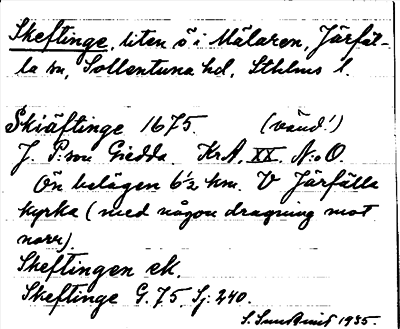 Skeftinge, liten ö i Mälaren, Järfäl-
la sn, Sollentuna hd, Sthlms l.
Skiäftinge 1675. (vänd!)
J. P:son Giedda. KrA. XX. N:o O.
Ön belägen 6½ km. V Järfälla
kyrka (med någon dragning mot
norr).
Skeftingen ek.
Skeftinge G. 75. Sj: 240.
S. Sundquist 1935.